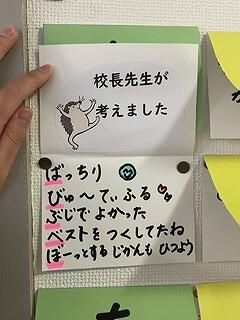 校長先生が
考えました
ばっちり
びゅ〜てぃふる
ぶじでよかった
ベストをつくしてたね
ぼーっとするじかんもひつよう